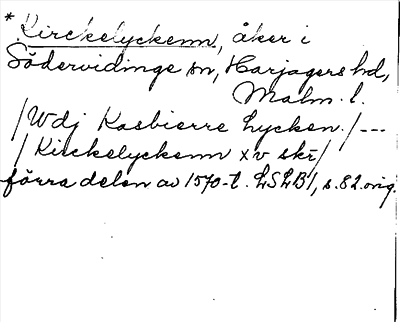 * Kirckelyckenn, åker i
Södervidinge sn, Harjagers hd,
Malm. l.
/Wdj Kasbierre Lycken./ ---
/Kirckelyckenn xv skr/
förra delen av 1570-t. LSLB1, s. 82. orig.